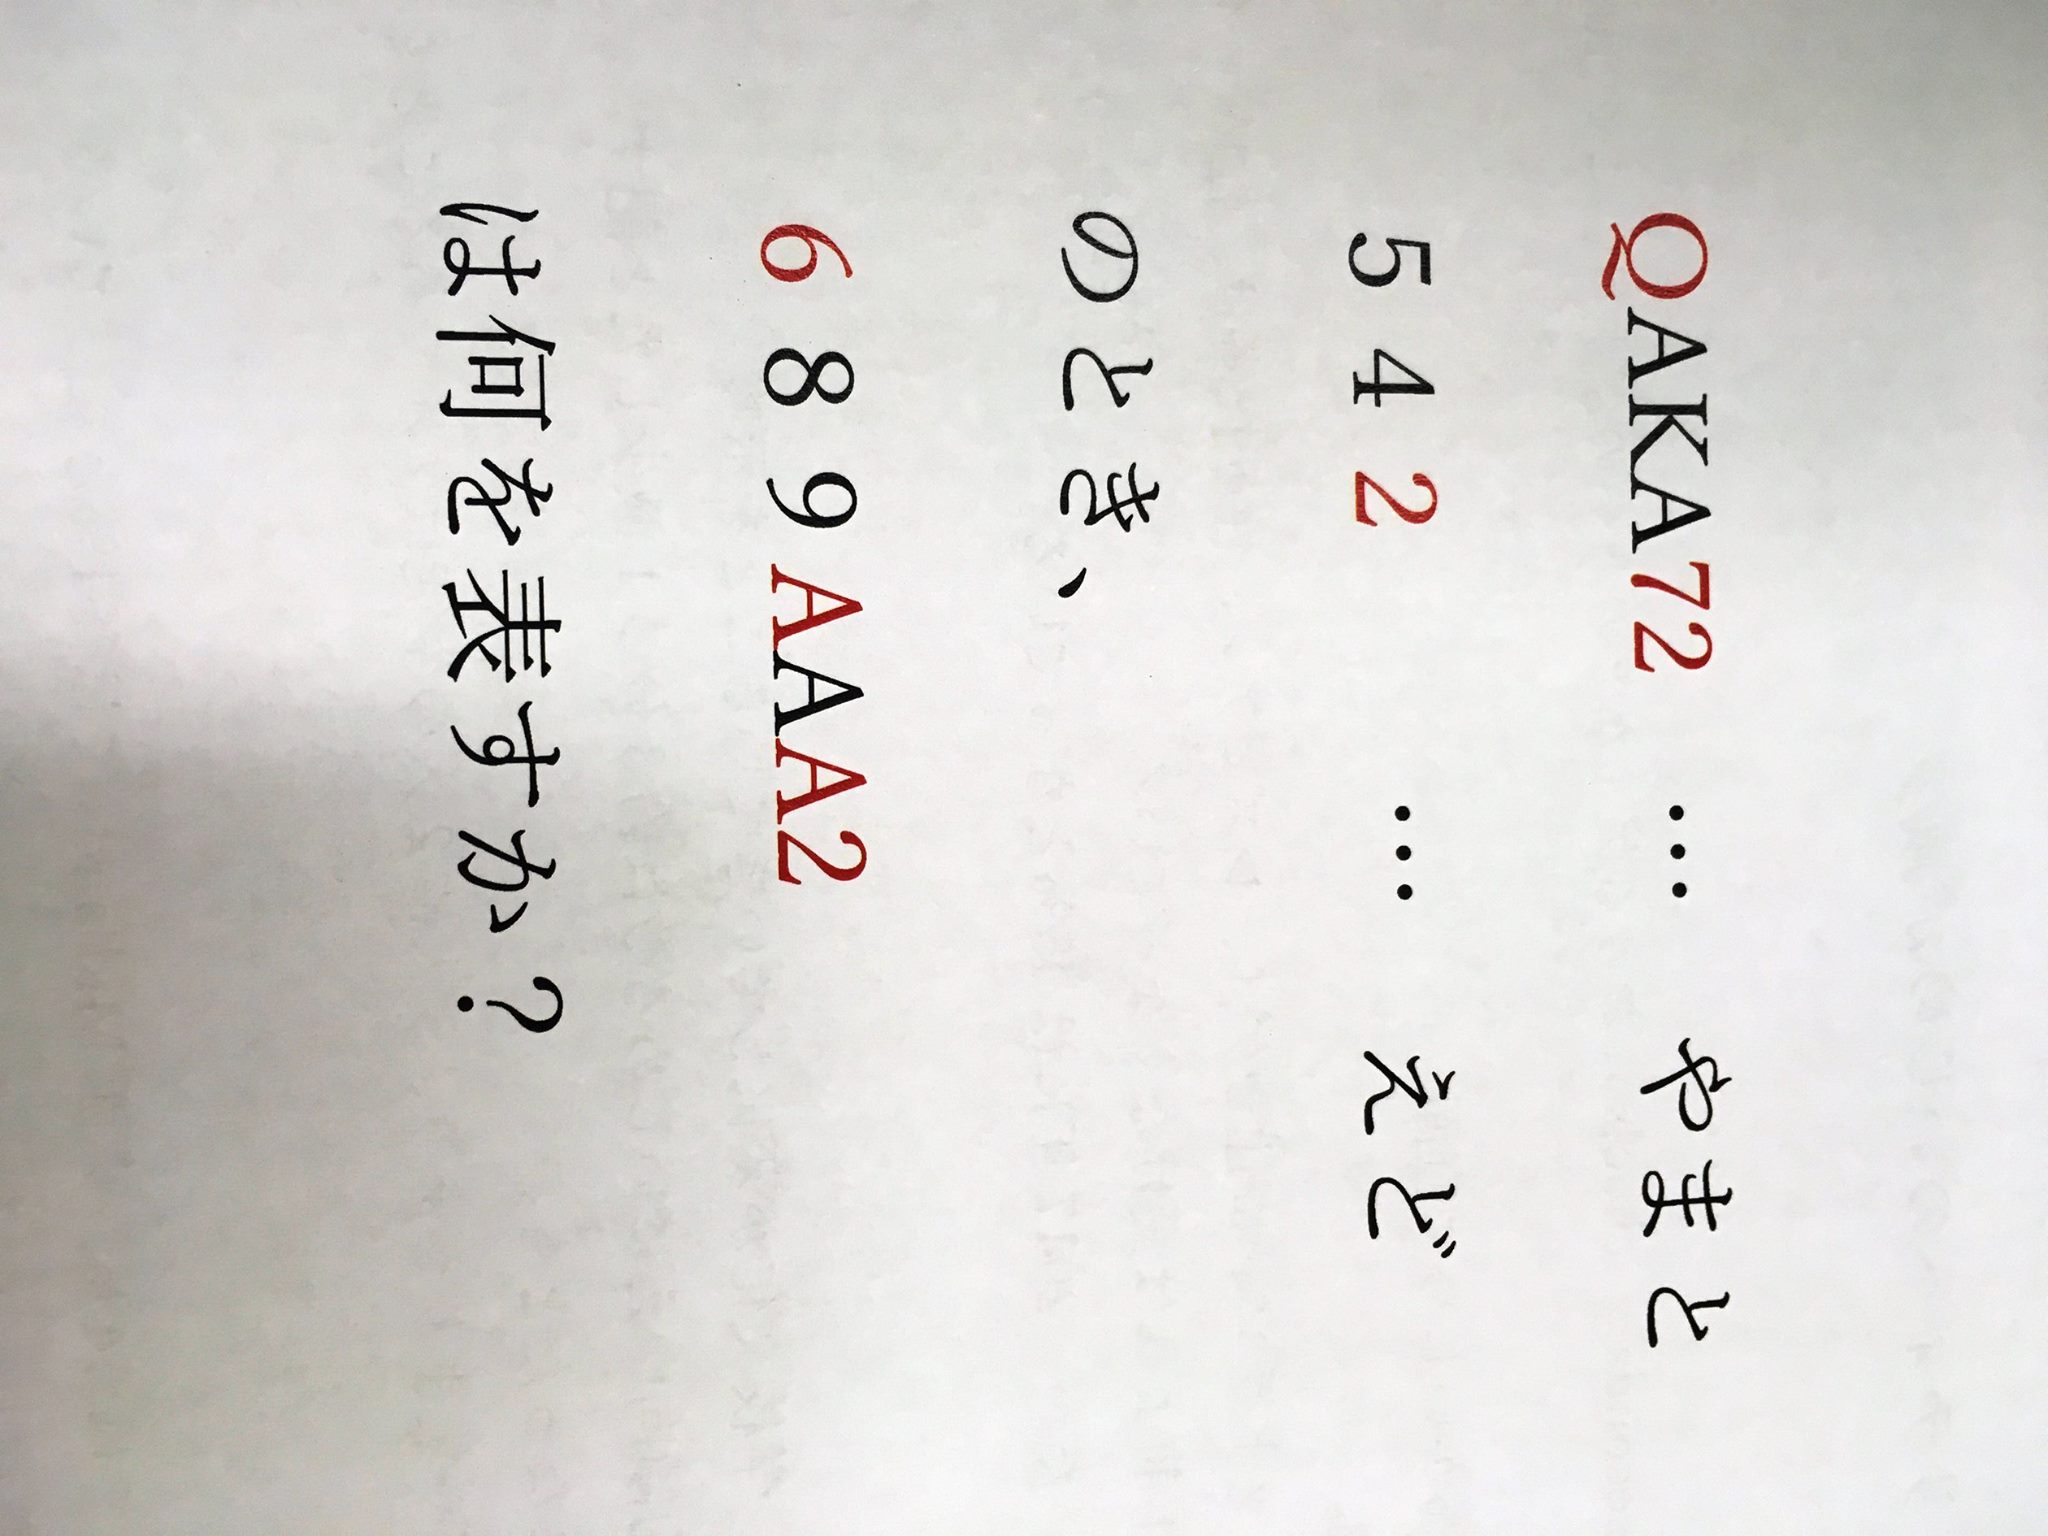 QAKA72 … やまと
542 … えど
のとき、
689AAA2
は何を表すか?